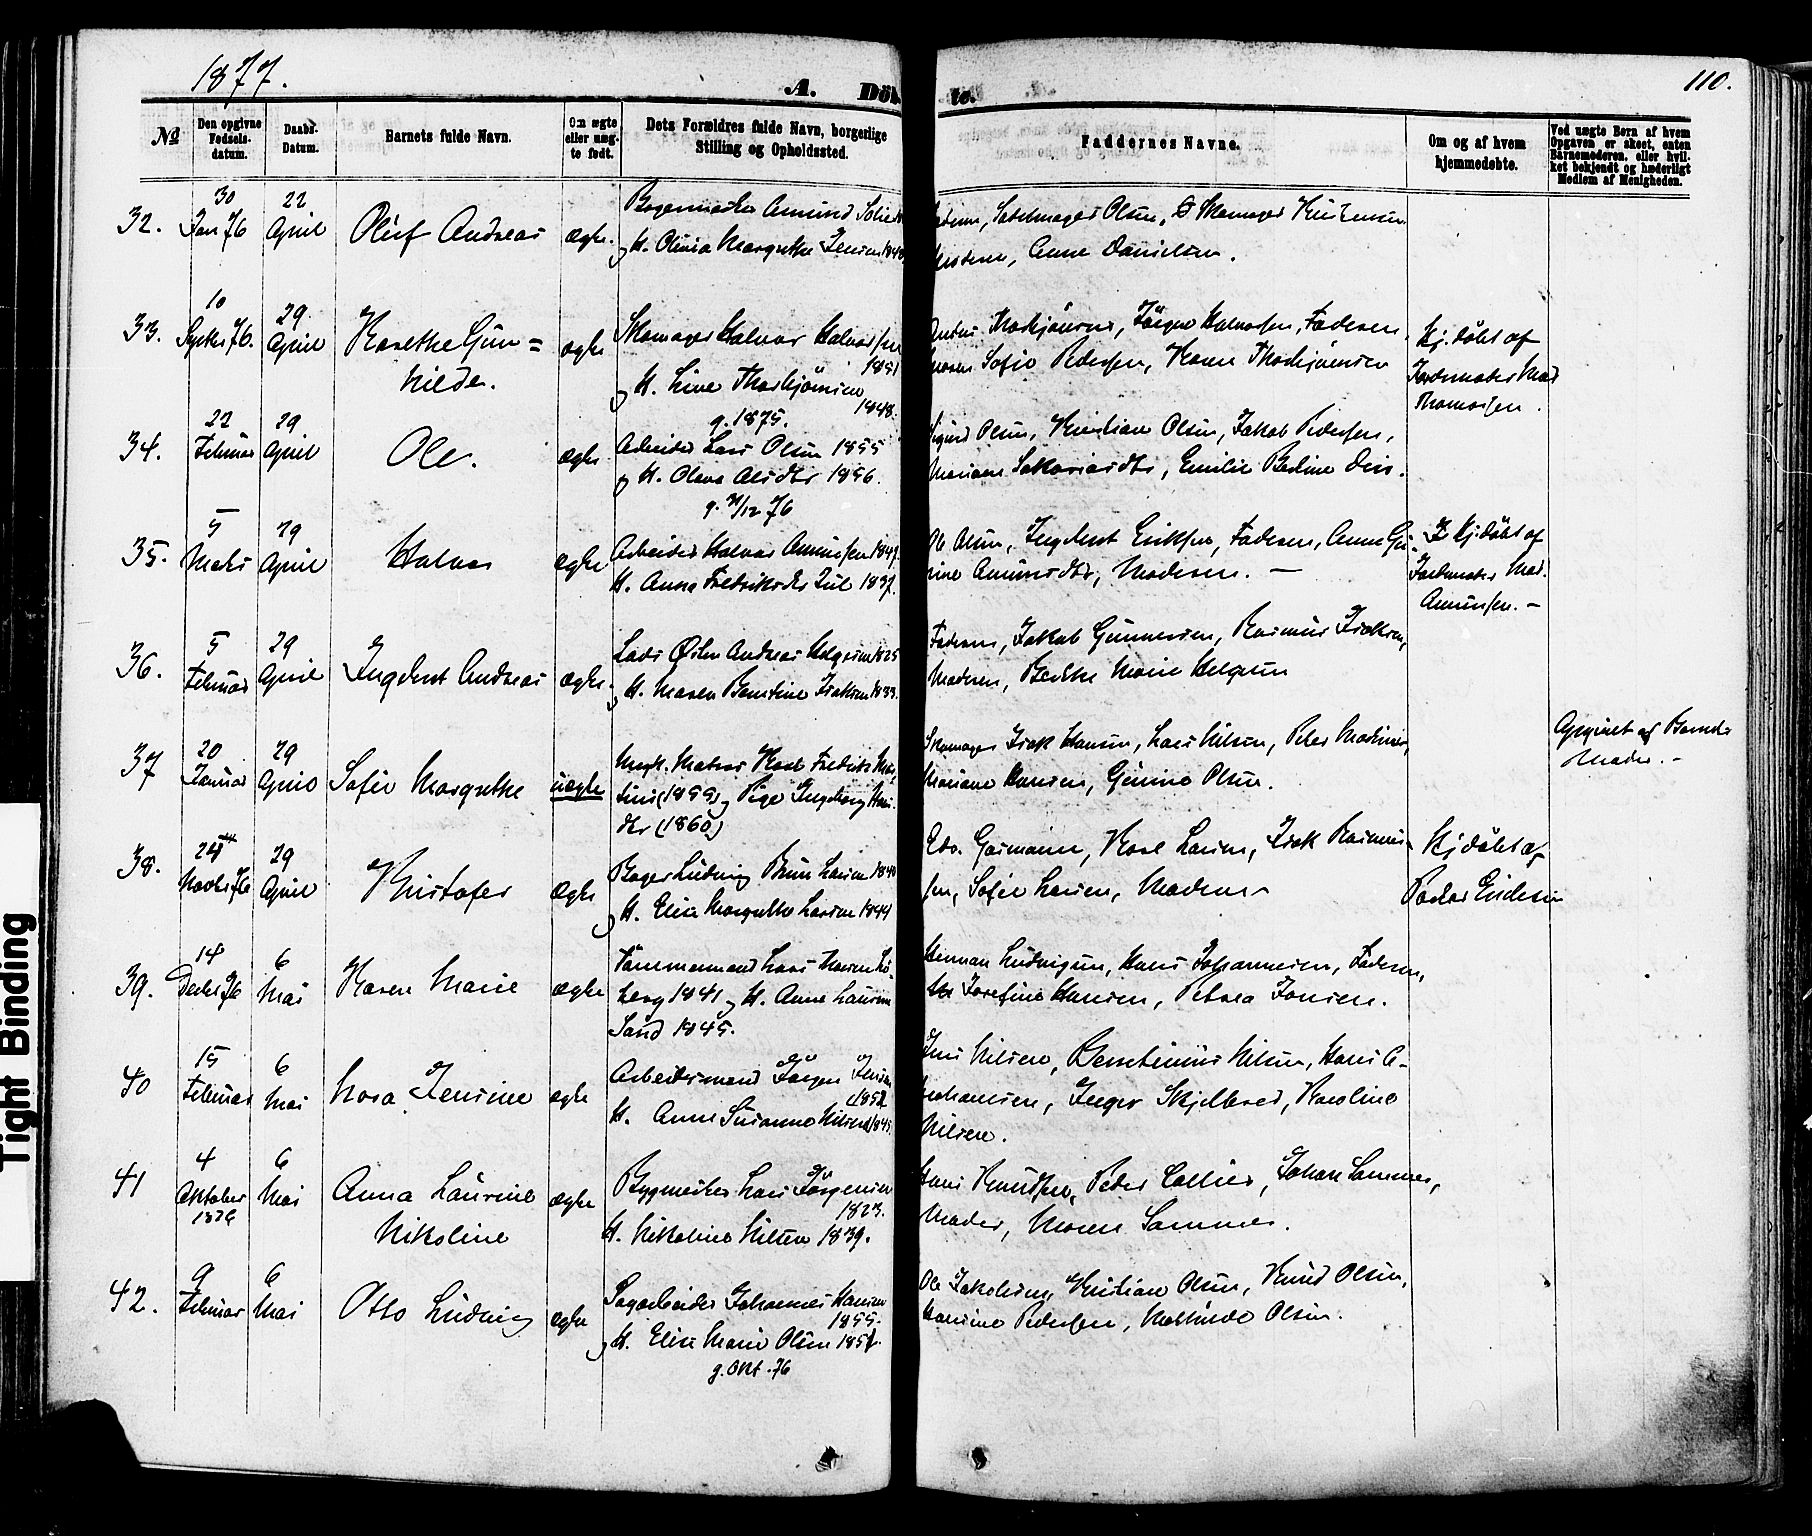 1877.
A. Döb
te.
110.
No
Den opgivne Fødsels-datum.
Daabs-Datum.
Barnets fulde Navn.
Om ægte eller uæg-te født.
Dets Forældres fulde Navn, borgerlige Stilling og Opholdssted.
Faddernes Navne.
Om og af hvem hjemmedøbte.
Ved uægte Børn af hvem Opgaven er skeet, enten Barnemoderen, eller hvil-ket bekjendt og hæderligt Medlem af Menigheden.
32.
30 Jan 76
22 April
Oluf Andreas
ægte.
Amund
og H. Olivia Margrethe Jensen 1840
Sadelmager Olsen, Skomager Kristensen
Anne Danielsen.
33.
10 Septbr 76.
29 April
Karethe Gun=
hilde.
ægte
Skomager Halvor Halvorsen
1851
og H. Line Thorbjörnsen
1848.
g. 1875.
Thorbjörnsen, Jörgen Halvorsen, Faderen
Sofie Pedersen, Karen Thorbjörnsen
Hj. döbt af
Jordmoder Mad
Thomasen.
34.
22 Februar
29 April
Ole.
ægte
Arbeider Lars Olsen 1855
og H. Olava Olsdtr 1856.
g. /12 76
Sigurd Olsen, Kristian Olsen, Jakob Pedersen,
Mariane Sakariasdtr, Emilie Berline
35.
5 Marts
29 April
Halvor
ægte
Arbeider Halvor Amunsen 1849.
H. Anna Fredriksdtr Juel 1837.
Ole Olsen, Ingebret Eriksen, Faderen, Anne Gu-
rine Amunsdtr, Moderen. —
Hj. döbt af
Jordmoder Mad.
Amunsen. —
36.
5 Februar
29 April
Ingebret Andreas
ægte.
Lods Andreas Helgesen 1825
og H. Maren Berntine Isaksen 1833.
Faderen, Jakob Gunnersen, Rasmus Isaksen,
Moderen, Berthe Marie Helgesen
37
20 Januar
29 April
Sofie Margrethe
uægte
Ungk. Matros Karl Fredrik Mar-
tinsen (1855) og Pige Ingeborg Han-
dtr (1860)
Skomager Isak Hansen, Lars Nilsen, Peter Mathisen,
Mariane Hansen, Gunine Olsen.
Opgivet af Barnets
Moder. —
38.
24 Novbr 76
29 April
Kristofer
ægte
Bager Ludvig Brun Larsen 1840
og H. Elise Margrethe Larsen 1844
Edv. Garmann, Karl Larsen, Isak Rasmus-
sen, Sofie Larsen, Moderen
Hj döbt af
39.
14 Decbr 76
6 Mai
Karen Marie
ægte
Tömmermand Lars Hansen Lö-
berg 1841 og H. Anne Laurine
Sand 1845.
Herman Ludvigsen, Hans Johannesen, Faderen,
Josefine Hansen, Petrea Jonsen.
40
15 Februar
6 Mai
Nora Jensine
ægte
Arbeidsmand Jörgen Jensen
1852
H. Anne Susanne Nilsen 1845.
Jens Nilsen, Berntinius Nilsen, Hans A-
brahamsen, Inger Skjelbred, Karoline
Nilsen.
41
4 Oktober 1876
6 Mai
Anna Laurine
Nikoline
ægte
Bygmester Lars Jörgensen
1823.
H. Nikoline Nilsen 1839.
Hans Knudsen, Peder Callies, Johan Sammer,
Moder, Maren Sammer.
42.
9 Februar
6 Mai
Otto Ludvig
ægte
Sagarbeider Johannes Hansen
1855.
og H. Elise Marie Olsen 1857.
g. Okt. 76
Ole Jakobsen, Kristian Olsen, Knud Olsen,
Hansine Pedersen, Mathilde Olsen.
Tight Binding